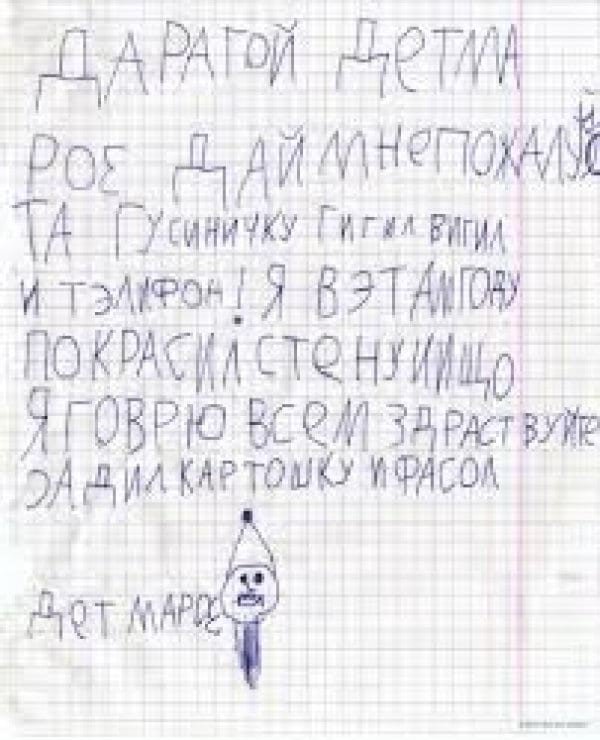 ДАРАГОЙ ДЕТМА
РОЕ ДАЙ МНЕПОХАЛУЙС
ТА ГУСИНИЧКУ ГИГИЛ ВИГИЛ
И ТЭЛИФОН! Я ВЭТАМГОДУ
ПОКРАСИЛ СТЕНУ И ИЩО
Я ГОВРЮ ВСЕМ ЗДРАСТВУЙТЕ
ЭАДИЛ КАРТОШКУ И ФАСОЛ
ДЕТ МАРОС